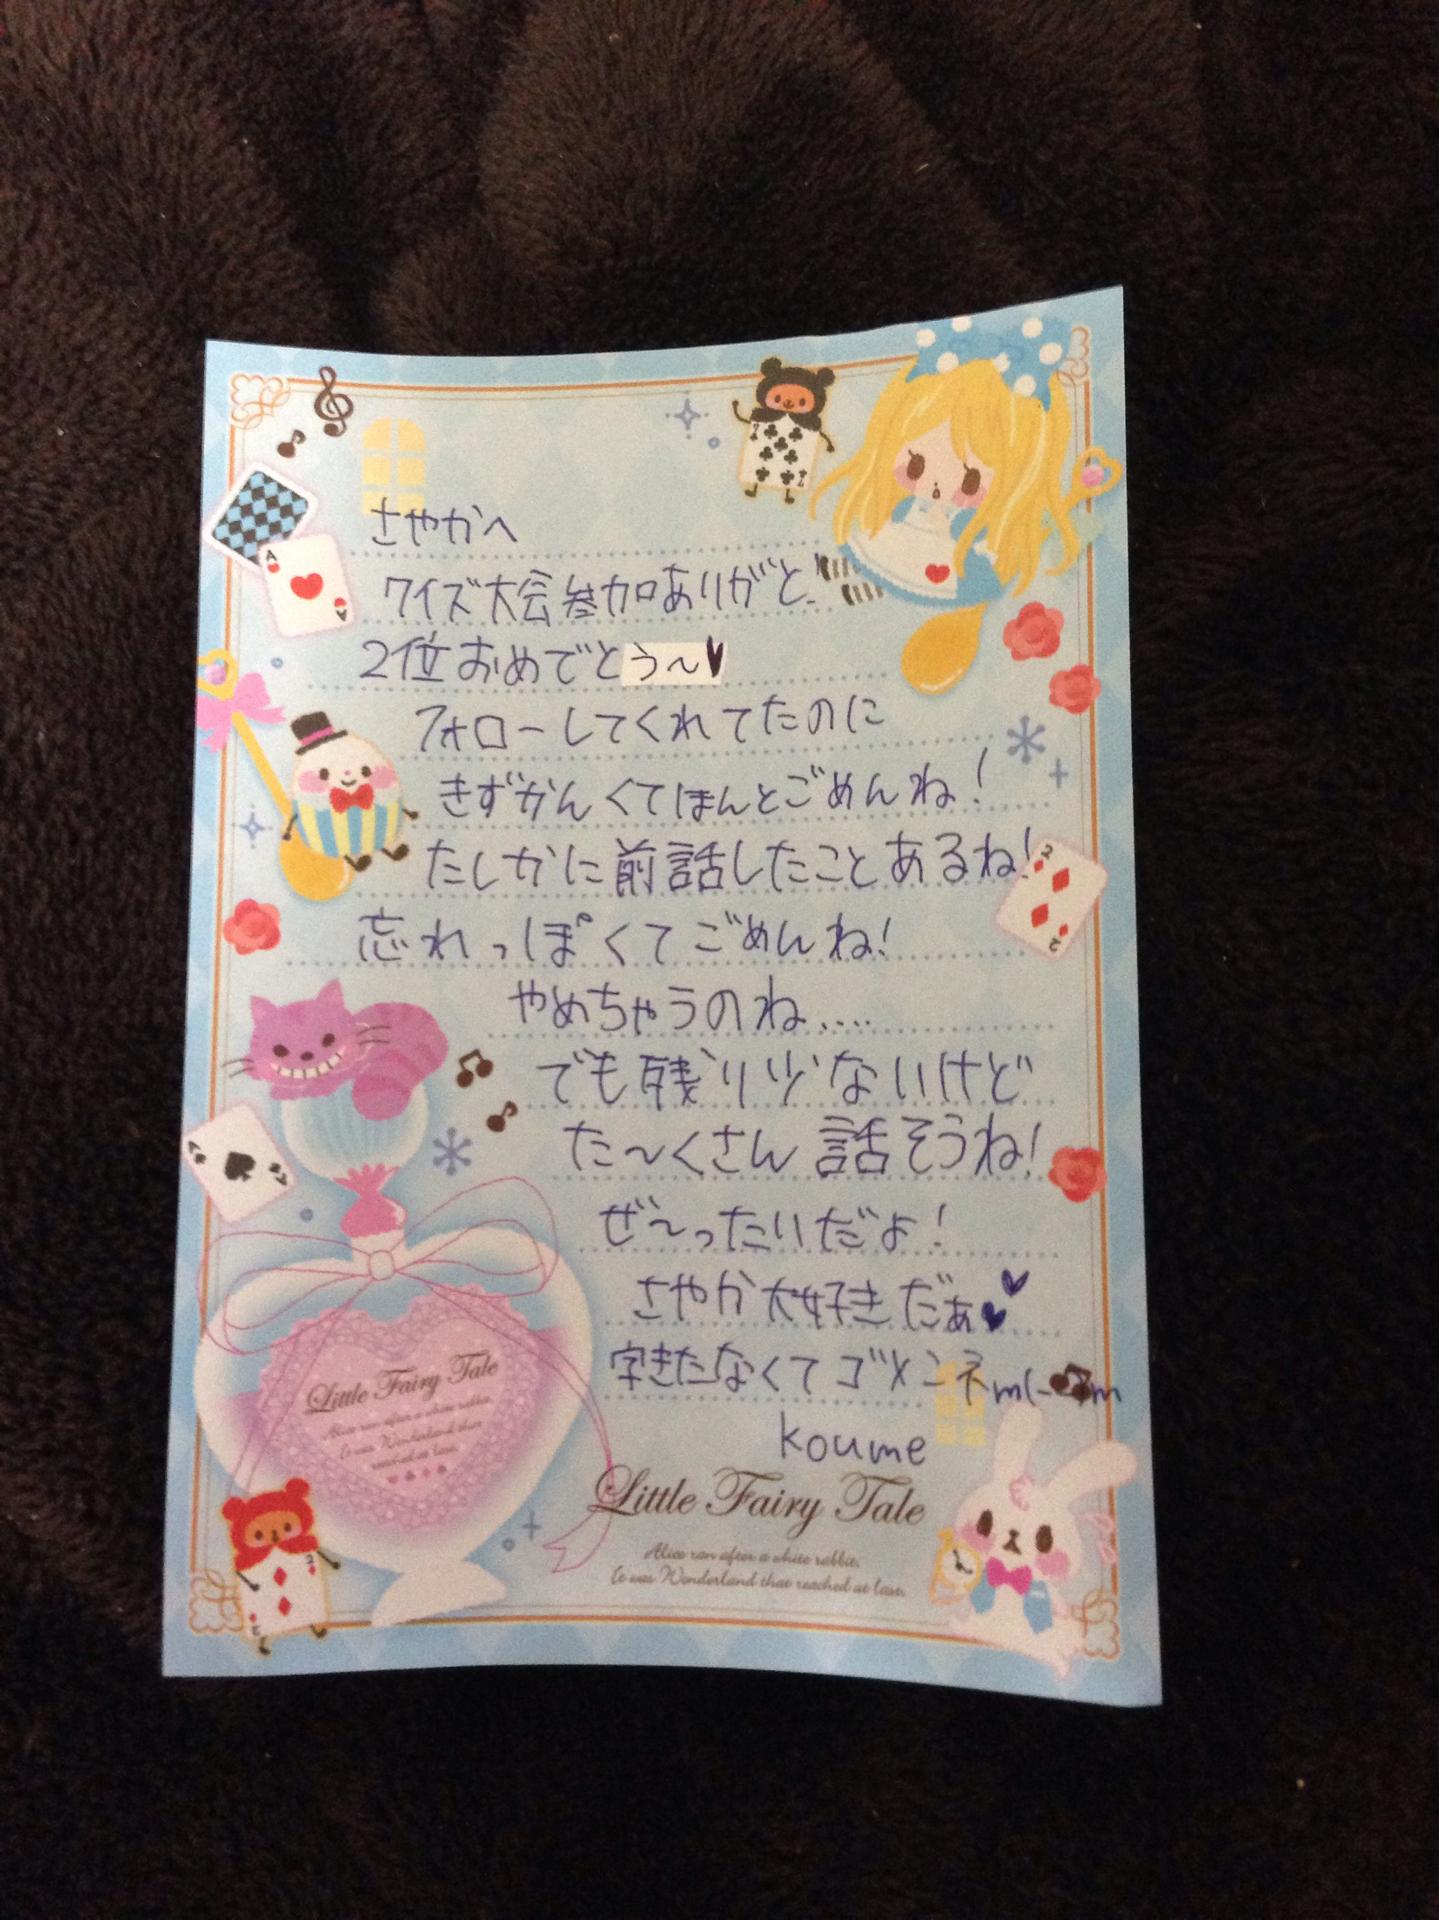 さやかへ
クイズ大会参加ありがと!
2位おめでとう〜♥
フォローしてくれてたのに
きずかんくてほんとごめんね!
たしかに前話したことあるね!
忘れっぽくてごめんね!
やめちゃうのね....
でも残り少ないけど
た〜くさん話そうね!
ぜ〜ったいだよ!
さやか大好きだぁ♥♥
字きたなくてゴメンネm(-_-)m
koume
Little Fairy Tale
Alice ran after a white rabbit.
It was Wonderland that reached at last.
Little Fairy Tale
Alice ran after a white rabbit.
It was Wonderland that
reached at last.
A
A
2
2
2